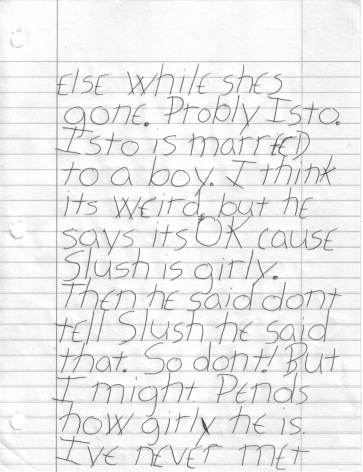 else while shes
gone. Probly Isto.
Isto is married
to a boy. I think
its weird, but he
says its OK cause
Slush is girly.
Then he said dont
tell Slush he said
that. So dont! But
I might. Pends
how girly he is.
I've never met